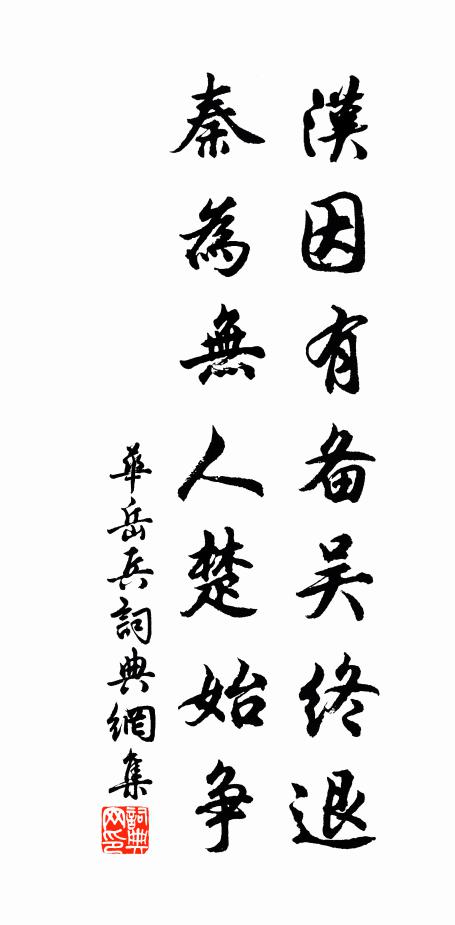 漢因有备吴终退
秦為無人楚始争
華岳兵詞典網集
詞典網印